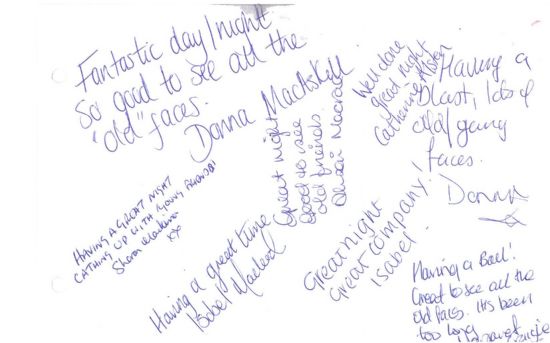 Fantastic day/night
So good to see all the
"old" faces.
Donna MacAskill
HAVING A GREAT NIGHT
CATHING UP WITH YOUNG FRIENDS!
Sharon
xx
Having a great time
Isobel Macleod
Great night
Good to see
old friends.
Great night
Great company!
Isabel
Well done
great night
Catherine
Having a
blast, lots of
old/young
faces.
Donna
Having a Ball!
Great to see all the
old faces. It's been
too long